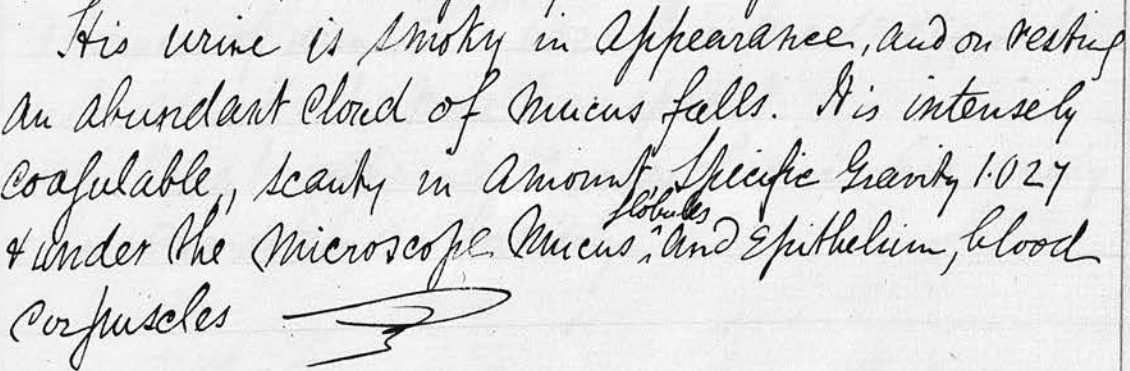 His urine is smoky in appearance, and on resting
an abundant cloud of mucus falls. It is intensely
coagulable, scanty in amount, Specific Gravity 1.027
& under the microscope Mucus globules and Epithelium, blood
corpuscles